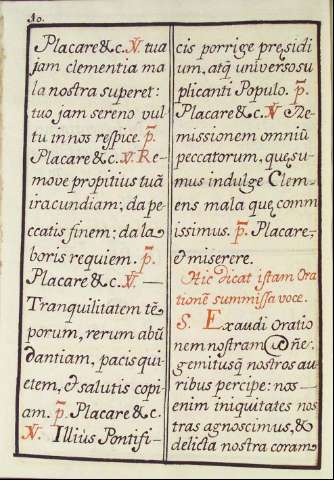 10.
Placare &c. ℣. tua
jam clementia ma
la nostra superet:
tuo jam sereno vul
tu in nos respice. ℟.
Placare &c. ℣. Re-
move propitius tuã
iracundiam; da pe-
ccatis finem; da la
boris requiem. ℟.
Placare &c. ℣. —
Tranquilitatem tẽ
porum, rerum abũ
dantiam, pacis qui-
etem, & salutis copi-
am. ℟. Placare &c.
℣. Illius Pontifi-
cis porrige pręsidi
um, atq̃ universo su
plicanti Populo. ℟.
Placare &c. ℣ Re-
missionem omniũ
peccatorum, quę su-
mus indulge Clem-
ens mala quę comm
issimus. ℟. Placare,
& miserere.
Hic dicat istam Ora
tionẽ summissa voce.
S. Exaudi Oratio
nem nostram Dñe,
gemitusq̃ nostros au
ribus percipe: nos —
enim iniquitates nos
tras agnoscimus, &
delicta nostra coram